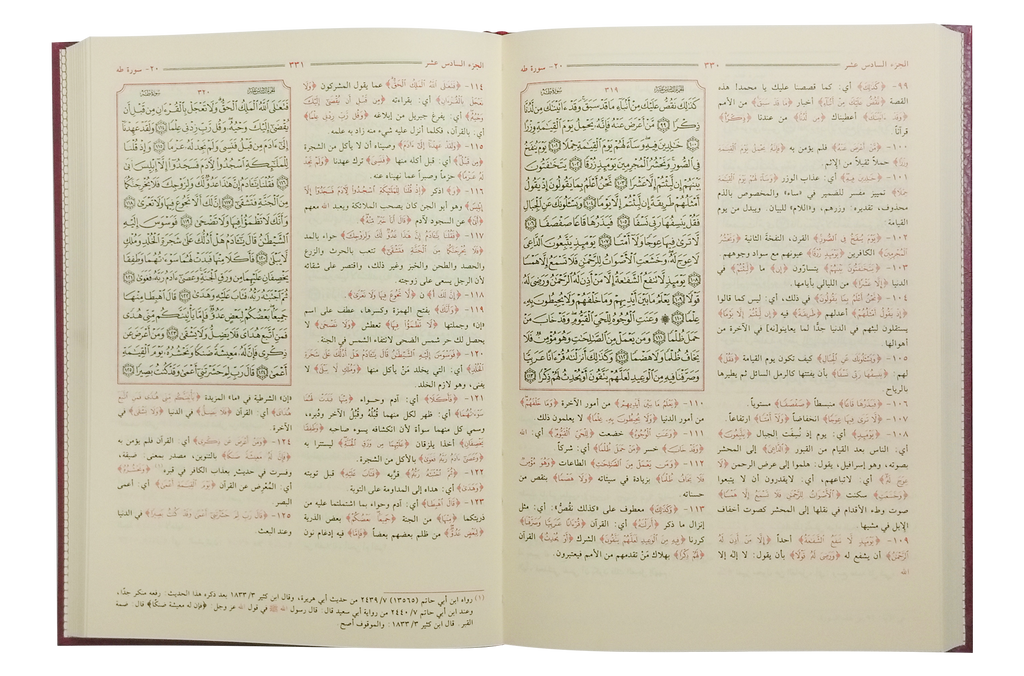 الجزء السادس عشر
٣٣٠
٢٠- سورة طه
٩٩- ﴿كَذَٰلِكَ﴾ أي: كما قصصنا عليك يا محمد! هذه
القصة ﴿نَقُصُّ عَلَيْكَ مِنْ أَنۢبَآءِ﴾ أخبار ﴿مَا قَدْ سَبَقَ﴾ من الأمم
﴿وَقَدْ ءَاتَيْنَٰكَ﴾ أعطيناك ﴿مِن لَّدُنَّا﴾ من عندنا ﴿ذِكْرًا﴾
قرآناً
١٠٠- ﴿مَّنْ أَعْرَضَ عَنْهُ﴾ فلم يؤمن به ﴿فَإِنَّهُۥ يَحْمِلُ يَوْمَ ٱلْقِيَٰمَةِ
وِزْرًا﴾ حملاً ثقيلاً من الإثم.
١٠١- ﴿خَٰلِدِينَ فِيهِ﴾ أي: عذاب الوزر ﴿وَسَآءَ لَهُمْ يَوْمَ ٱلْقِيَٰمَةِ
حِمْلًا﴾ تمييز مفسر للضمير في «ساء» والمخصوص بالذم
محذوف، تقديره: وزرهم، و«اللام» للبيان. ويبدل من يوم
القيامة
١٠٢- ﴿يَوْمَ يُنفَخُ فِى ٱلصُّورِ﴾ القرن، النفخةُ الثانية ﴿وَنَحْشُرُ
ٱلْمُجْرِمِينَ﴾ الكافرين ﴿يَوْمَئِذٍ زُرْقًا﴾ عيونهم مع سواد وجوههم.
١٠٣- ﴿يَتَخَٰفَتُونَ بَيْنَهُمْ﴾ يتسارّون ﴿إِن﴾ ما ﴿لَّبِثْتُمْ﴾ في
الدنيا ﴿إِلَّا عَشْرًا﴾ من الليالي بأيامها.
١٠٤- ﴿نَّحْنُ أَعْلَمُ بِمَا يَقُولُونَ﴾ في ذلك، أي: ليس كما قالوا
﴿إِذْ يَقُولُ أَمْثَلُهُمْ﴾ أعدلهم ﴿طَرِيقَةً﴾ فيه ﴿إِن لَّبِثْتُمْ إِلَّا يَوْمًا﴾
يستقلون لبثهم في الدنيا جدًّا لما يعاينو[نه] في الآخرة من
أهوالها.
١٠٥- ﴿وَيَسْـَٔلُونَكَ عَنِ ٱلْجِبَالِ﴾ كيف تكون يوم القيامة ﴿فَقُلْ﴾
لهم: ﴿يَنسِفُهَا رَبِّى نَسْفًا﴾ بأن يفتتها كالرمل السائل ثم يطيرها
بالرياح.
١٠٦- ﴿فَيَذَرُهَا قَاعًا﴾ منبسطاً ﴿صَفْصَفًا﴾ مستوياً.
١٠٧- ﴿لَّا تَرَىٰ فِيهَا عِوَجًا﴾ انخفاضاً ﴿وَلَآ أَمْتًا﴾ ارتفاعاً.
١٠٨- ﴿يَوْمَئِذٍ﴾ أي: يوم إذ نُسِفَت الجبال ﴿يَتَّبِعُونَ﴾
أي: الناس بعد القيام من القبور ﴿ٱلدَّاعِىَ﴾ إلى المحشر
بصوته، وهو إسرافيل، يقول: هلموا إلى عرض الرحمن ﴿لَا
عِوَجَ لَهُۥ﴾ أي: لاتباعهم، أي: لايقدرون أن لا يتبعوا
﴿وَخَشَعَتِ﴾ سكتت ﴿ٱلْأَصْوَاتُ لِلرَّحْمَٰنِ فَلَا تَسْمَعُ إِلَّا هَمْسًا﴾
صوت وطء الأقدام في نقلها إلى المحشر كصوت أخفاف
الإبل في مشيها.
١٠٩- ﴿يَوْمَئِذٍ لَّا تَنفَعُ ٱلشَّفَٰعَةُ﴾ أحداً ﴿إِلَّا مَنْ أَذِنَ لَهُ
ٱلرَّحْمَٰنُ﴾ أن يشفع له ﴿وَرَضِىَ لَهُۥ قَوْلًا﴾ بأن يقول: لا إله إلا
الله
٣١٩
كَذَٰلِكَ نَقُصُّ عَلَيْكَ مِنْ أَنۢبَآءِ مَا قَدْ سَبَقَ وَقَدْ ءَاتَيْنَٰكَ مِن لَّدُنَّا
ذِكْرًا ۝٩٩ مَّنْ أَعْرَضَ عَنْهُ فَإِنَّهُۥ يَحْمِلُ يَوْمَ ٱلْقِيَٰمَةِ وِزْرًا
۝١٠٠ خَٰلِدِينَ فِيهِ وَسَآءَ لَهُمْ يَوْمَ ٱلْقِيَٰمَةِ حِمْلًا ۝١٠١ يَوْمَ يُنفَخُ
فِى ٱلصُّورِ وَنَحْشُرُ ٱلْمُجْرِمِينَ يَوْمَئِذٍ زُرْقًا ۝١٠٢ يَتَخَٰفَتُونَ
بَيْنَهُمْ إِن لَّبِثْتُمْ إِلَّا عَشْرًا ۝١٠٣ نَّحْنُ أَعْلَمُ بِمَا يَقُولُونَ إِذْ يَقُولُ
أَمْثَلُهُمْ طَرِيقَةً إِن لَّبِثْتُمْ إِلَّا يَوْمًا ۝١٠٤ وَيَسْـَٔلُونَكَ عَنِ ٱلْجِبَالِ
فَقُلْ يَنسِفُهَا رَبِّى نَسْفًا ۝١٠٥ فَيَذَرُهَا قَاعًا صَفْصَفًا ۝١٠٦
لَّا تَرَىٰ فِيهَا عِوَجًا وَلَآ أَمْتًا ۝١٠٧ يَوْمَئِذٍ يَتَّبِعُونَ ٱلدَّاعِىَ
لَا عِوَجَ لَهُۥ وَخَشَعَتِ ٱلْأَصْوَاتُ لِلرَّحْمَٰنِ فَلَا تَسْمَعُ إِلَّا هَمْسًا
۝١٠٨ يَوْمَئِذٍ لَّا تَنفَعُ ٱلشَّفَٰعَةُ إِلَّا مَنْ أَذِنَ لَهُ ٱلرَّحْمَٰنُ وَرَضِىَ لَهُۥ
قَوْلًا ۝١٠٩ يَعْلَمُ مَا بَيْنَ أَيْدِيهِمْ وَمَا خَلْفَهُمْ وَلَا يُحِيطُونَ بِهِۦ
عِلْمًا ۝١١٠ ۞ وَعَنَتِ ٱلْوُجُوهُ لِلْحَىِّ ٱلْقَيُّومِ وَقَدْ خَابَ مَنْ
حَمَلَ ظُلْمًا ۝١١١ وَمَن يَعْمَلْ مِنَ ٱلصَّٰلِحَٰتِ وَهُوَ مُؤْمِنٌ فَلَا
يَخَافُ ظُلْمًا وَلَا هَضْمًا ۝١١٢ وَكَذَٰلِكَ أَنزَلْنَٰهُ قُرْءَانًا عَرَبِيًّا
وَصَرَّفْنَا فِيهِ مِنَ ٱلْوَعِيدِ لَعَلَّهُمْ يَتَّقُونَ أَوْ يُحْدِثُ لَهُمْ ذِكْرًا ۝١١٣
١١٠- ﴿يَعْلَمُ مَا بَيْنَ أَيْدِيهِمْ﴾ من أمور الآخرة ﴿وَمَا خَلْفَهُمْ﴾
من أمور الدنيا ﴿وَلَا يُحِيطُونَ بِهِۦ عِلْمًا﴾ لا يعلمون ذلك
١١١- ﴿وَعَنَتِ ٱلْوُجُوهُ﴾ خضعت ﴿لِلْحَىِّ ٱلْقَيُّومِ﴾ أي: الله
﴿وَقَدْ خَابَ﴾ خسر ﴿مَنْ حَمَلَ ظُلْمًا﴾ أي: شركاً.
١١٢- ﴿وَمَن يَعْمَلْ مِنَ ٱلصَّٰلِحَٰتِ﴾ الطاعات ﴿وَهُوَ مُؤْمِنٌ
فَلَا يَخَافُ ظُلْمًا﴾ بزيادة في سيئاته ﴿وَلَا هَضْمًا﴾ بنقص من
حسناته.
١١٣- ﴿وَكَذَٰلِكَ﴾ معطوف على «كذلك نقُصُّ»: أي: مثل
إنزال ما ذكر ﴿أَنزَلْنَٰهُ﴾ أي: القرآن ﴿قُرْءَانًا عَرَبِيًّا وَصَرَّفْنَا﴾
كررنا ﴿فِيهِ مِنَ ٱلْوَعِيدِ لَعَلَّهُمْ يَتَّقُونَ﴾ الشرك ﴿أَوْ يُحْدِثُ﴾ القرآن
﴿لَهُمْ ذِكْرًا﴾ بهلاك مَنْ تقدمهم من الأمم فيعتبرون.
الجزء السادس عشر
٣٣١
٢٠- سورة طه
١١٤- ﴿فَتَعَٰلَى ٱللَّهُ ٱلْمَلِكُ ٱلْحَقُّ﴾ عما يقول المشركون ﴿وَلَا
تَعْجَلْ بِٱلْقُرْءَانِ﴾ أي: بقراءته ﴿مِن قَبْلِ أَن يُقْضَىٰٓ إِلَيْكَ
وَحْيُهُۥ﴾ أي: يفرغ جبريل من إبلاغه ﴿وَقُل رَّبِّ زِدْنِى عِلْمًا﴾
أي: بالقرآن، فكلما أنزل عليه شيء منه زاد به علمه.
١١٥- ﴿وَلَقَدْ عَهِدْنَآ إِلَىٰٓ ءَادَمَ﴾ وصيناه أن لا يأكل من الشجرة
﴿مِن قَبْلُ﴾ أي: قبل أكله منها ﴿فَنَسِىَ﴾ ترك عهدنا ﴿وَلَمْ نَجِدْ
لَهُۥ عَزْمًا﴾ حزماً وصبراً عما نهيناه عنه.
١١٦- ﴿وَ﴾ اذكر ﴿إِذْ قُلْنَا لِلْمَلَٰٓئِكَةِ ٱسْجُدُوا۟ لِءَادَمَ فَسَجَدُوٓا۟ إِلَّآ
إِبْلِيسَ﴾ وهو أبو الجن كان يصحب الملائكة ويعبد الله معهم
﴿أَبَىٰ﴾ عن السجود لآدم ﴿قَالَ أَنَا۠ خَيْرٌ مِّنْهُ﴾.
١١٧- ﴿فَقُلْنَا يَٰٓـَٔادَمُ إِنَّ هَٰذَا عَدُوٌّ لَّكَ وَلِزَوْجِكَ﴾ حواء بالمد
﴿فَلَا يُخْرِجَنَّكُمَا مِنَ ٱلْجَنَّةِ فَتَشْقَىٰٓ﴾ تتعب بالحرث والزرع
والحصد والطحن والخبز وغير ذلك، واقتصر على شقائه
لأن الرجل يسعى على زوجته.
١١٨- ﴿إِنَّ لَكَ أَ﴾ ن ﴿لَّا تَجُوعَ فِيهَا وَلَا تَعْرَىٰ﴾.
١١٩- ﴿وَأَنَّكَ﴾ بفتح الهمزة وكسرها، عطف على اسم
«إن» وجملتها ﴿لَا تَظْمَؤُا۟ فِيهَا﴾ تعطش ﴿وَلَا تَضْحَىٰ﴾ لا
يحصل لك حر شمس الضحى لانتفاء الشمس في الجنة.
١٢٠- ﴿فَوَسْوَسَ إِلَيْهِ ٱلشَّيْطَٰنُ قَالَ يَٰٓـَٔادَمُ هَلْ أَدُلُّكَ عَلَىٰ شَجَرَةِ
ٱلْخُلْدِ﴾ أي: التي يخلد مَنْ يأكل منها ﴿وَمُلْكٍ لَّا يَبْلَىٰ﴾ لا
يفنى، وهو لازم الخلد.
١٢١- ﴿فَأَكَلَا﴾ أي: آدم وحواء ﴿مِنْهَا فَبَدَتْ لَهُمَا
سَوْءَٰتُهُمَا﴾ أي: ظهر لكل منهما قُبُلُه وقُبُلُ الآخر ودُبره،
وسمي كل منهما سوأة لأن انكشافه يسوء صاحبه ﴿وَطَفِقَا
يَخْصِفَانِ﴾ أخذا يلزقان ﴿عَلَيْهِمَا مِن وَرَقِ ٱلْجَنَّةِ﴾ ليستترا به
﴿وَعَصَىٰٓ ءَادَمُ رَبَّهُۥ فَغَوَىٰ﴾ بالأكل من الشجرة.
١٢٢- ﴿ثُمَّ ٱجْتَبَٰهُ رَبُّهُۥ﴾ قرَّبه ﴿فَتَابَ عَلَيْهِ﴾ قبل توبته
﴿وَهَدَىٰ﴾ أي: هداه إلى المداومة على التوبة
١٢٣- ﴿قَالَ ٱهْبِطَا﴾ أي: آدم وحواء بما اشتملتما عليه من
ذريتكما ﴿مِنْهَا﴾ من الجنة ﴿جَمِيعًۢا بَعْضُكُمْ﴾ بعض الذرية
﴿لِبَعْضٍ عَدُوٌّ﴾ من ظلم بعضهم بعضاً ﴿فَإِمَّا﴾ فيه إدغام نون
٣٢٠
فَتَعَٰلَى ٱللَّهُ ٱلْمَلِكُ ٱلْحَقُّ وَلَا تَعْجَلْ بِٱلْقُرْءَانِ مِن قَبْلِ أَن
يُقْضَىٰٓ إِلَيْكَ وَحْيُهُۥ وَقُل رَّبِّ زِدْنِى عِلْمًا ۝١١٤ وَلَقَدْ عَهِدْنَآ
إِلَىٰٓ ءَادَمَ مِن قَبْلُ فَنَسِىَ وَلَمْ نَجِدْ لَهُۥ عَزْمًا ۝١١٥ وَإِذْ قُلْنَا
لِلْمَلَٰٓئِكَةِ ٱسْجُدُوا۟ لِءَادَمَ فَسَجَدُوٓا۟ إِلَّآ إِبْلِيسَ أَبَىٰ
۝١١٦ فَقُلْنَا يَٰٓـَٔادَمُ إِنَّ هَٰذَا عَدُوٌّ لَّكَ وَلِزَوْجِكَ فَلَا يُخْرِجَنَّكُمَا
مِنَ ٱلْجَنَّةِ فَتَشْقَىٰٓ ۝١١٧ إِنَّ لَكَ أَلَّا تَجُوعَ فِيهَا وَلَا تَعْرَىٰ ۝١١٨
وَأَنَّكَ لَا تَظْمَؤُا۟ فِيهَا وَلَا تَضْحَىٰ ۝١١٩ فَوَسْوَسَ إِلَيْهِ
ٱلشَّيْطَٰنُ قَالَ يَٰٓـَٔادَمُ هَلْ أَدُلُّكَ عَلَىٰ شَجَرَةِ ٱلْخُلْدِ وَمُلْكٍ
لَّا يَبْلَىٰ ۝١٢٠ فَأَكَلَا مِنْهَا فَبَدَتْ لَهُمَا سَوْءَٰتُهُمَا وَطَفِقَا
يَخْصِفَانِ عَلَيْهِمَا مِن وَرَقِ ٱلْجَنَّةِ وَعَصَىٰٓ ءَادَمُ رَبَّهُۥ فَغَوَىٰ ۝١٢١
ثُمَّ ٱجْتَبَٰهُ رَبُّهُۥ فَتَابَ عَلَيْهِ وَهَدَىٰ ۝١٢٢ قَالَ ٱهْبِطَا مِنْهَا
جَمِيعًۢا بَعْضُكُمْ لِبَعْضٍ عَدُوٌّ فَإِمَّا يَأْتِيَنَّكُم مِّنِّى هُدًى
فَمَنِ ٱتَّبَعَ هُدَاىَ فَلَا يَضِلُّ وَلَا يَشْقَىٰ ۝١٢٣ وَمَنْ أَعْرَضَ عَن
ذِكْرِى فَإِنَّ لَهُۥ مَعِيشَةً ضَنكًا وَنَحْشُرُهُۥ يَوْمَ ٱلْقِيَٰمَةِ
أَعْمَىٰ ۝١٢٤ قَالَ رَبِّ لِمَ حَشَرْتَنِىٓ أَعْمَىٰ وَقَدْ كُنتُ بَصِيرًا ۝١٢٥
«إن» الشرطية في «ما» المزيدة ﴿يَأْتِيَنَّكُم مِّنِّى هُدًى فَمَنِ ٱتَّبَعَ
هُدَاىَ﴾ أي: القرآن ﴿فَلَا يَضِلُّ﴾ في الدنيا ﴿وَلَا يَشْقَىٰ﴾ في
الآخرة.
١٢٤- ﴿وَمَنْ أَعْرَضَ عَن ذِكْرِى﴾ أي: القرآن فلم يؤمن به
﴿فَإِنَّ لَهُۥ مَعِيشَةً ضَنكًا﴾ بالتنوين، مصدر بمعنى: ضيقة،
وفسرت في حديث بعذاب الكافر في قبره(١) ﴿وَنَحْشُرُهُۥ﴾
أي: المُعْرِض عن القرآن ﴿يَوْمَ ٱلْقِيَٰمَةِ أَعْمَىٰ﴾ أي: أعمى
البصر
١٢٥- ﴿قَالَ رَبِّ لِمَ حَشَرْتَنِىٓ أَعْمَىٰ وَقَدْ كُنتُ بَصِيرًا﴾ في الدنيا
وعند البعث
(١) رواه ابن أبي حاتم (١٣٥٦٥) ٢٤٣٩/٧ من حديث أبي هريرة، وقال ابن كثير ١٨٣٣/٣ بعد ذكره هذا الحديث: رفعه منكر جدًا،
وعند ابن أبي حاتم ٢٤٤٠/٧ من رواية أبي سعيد قال: قال رسول الله ﷺ في قول الله عز وجل: ﴿فإن له معيشة ضنكًا﴾ قال: ضمة
القبر. قال ابن كثير ١٨٣٣/٣: والموقوف أصح.